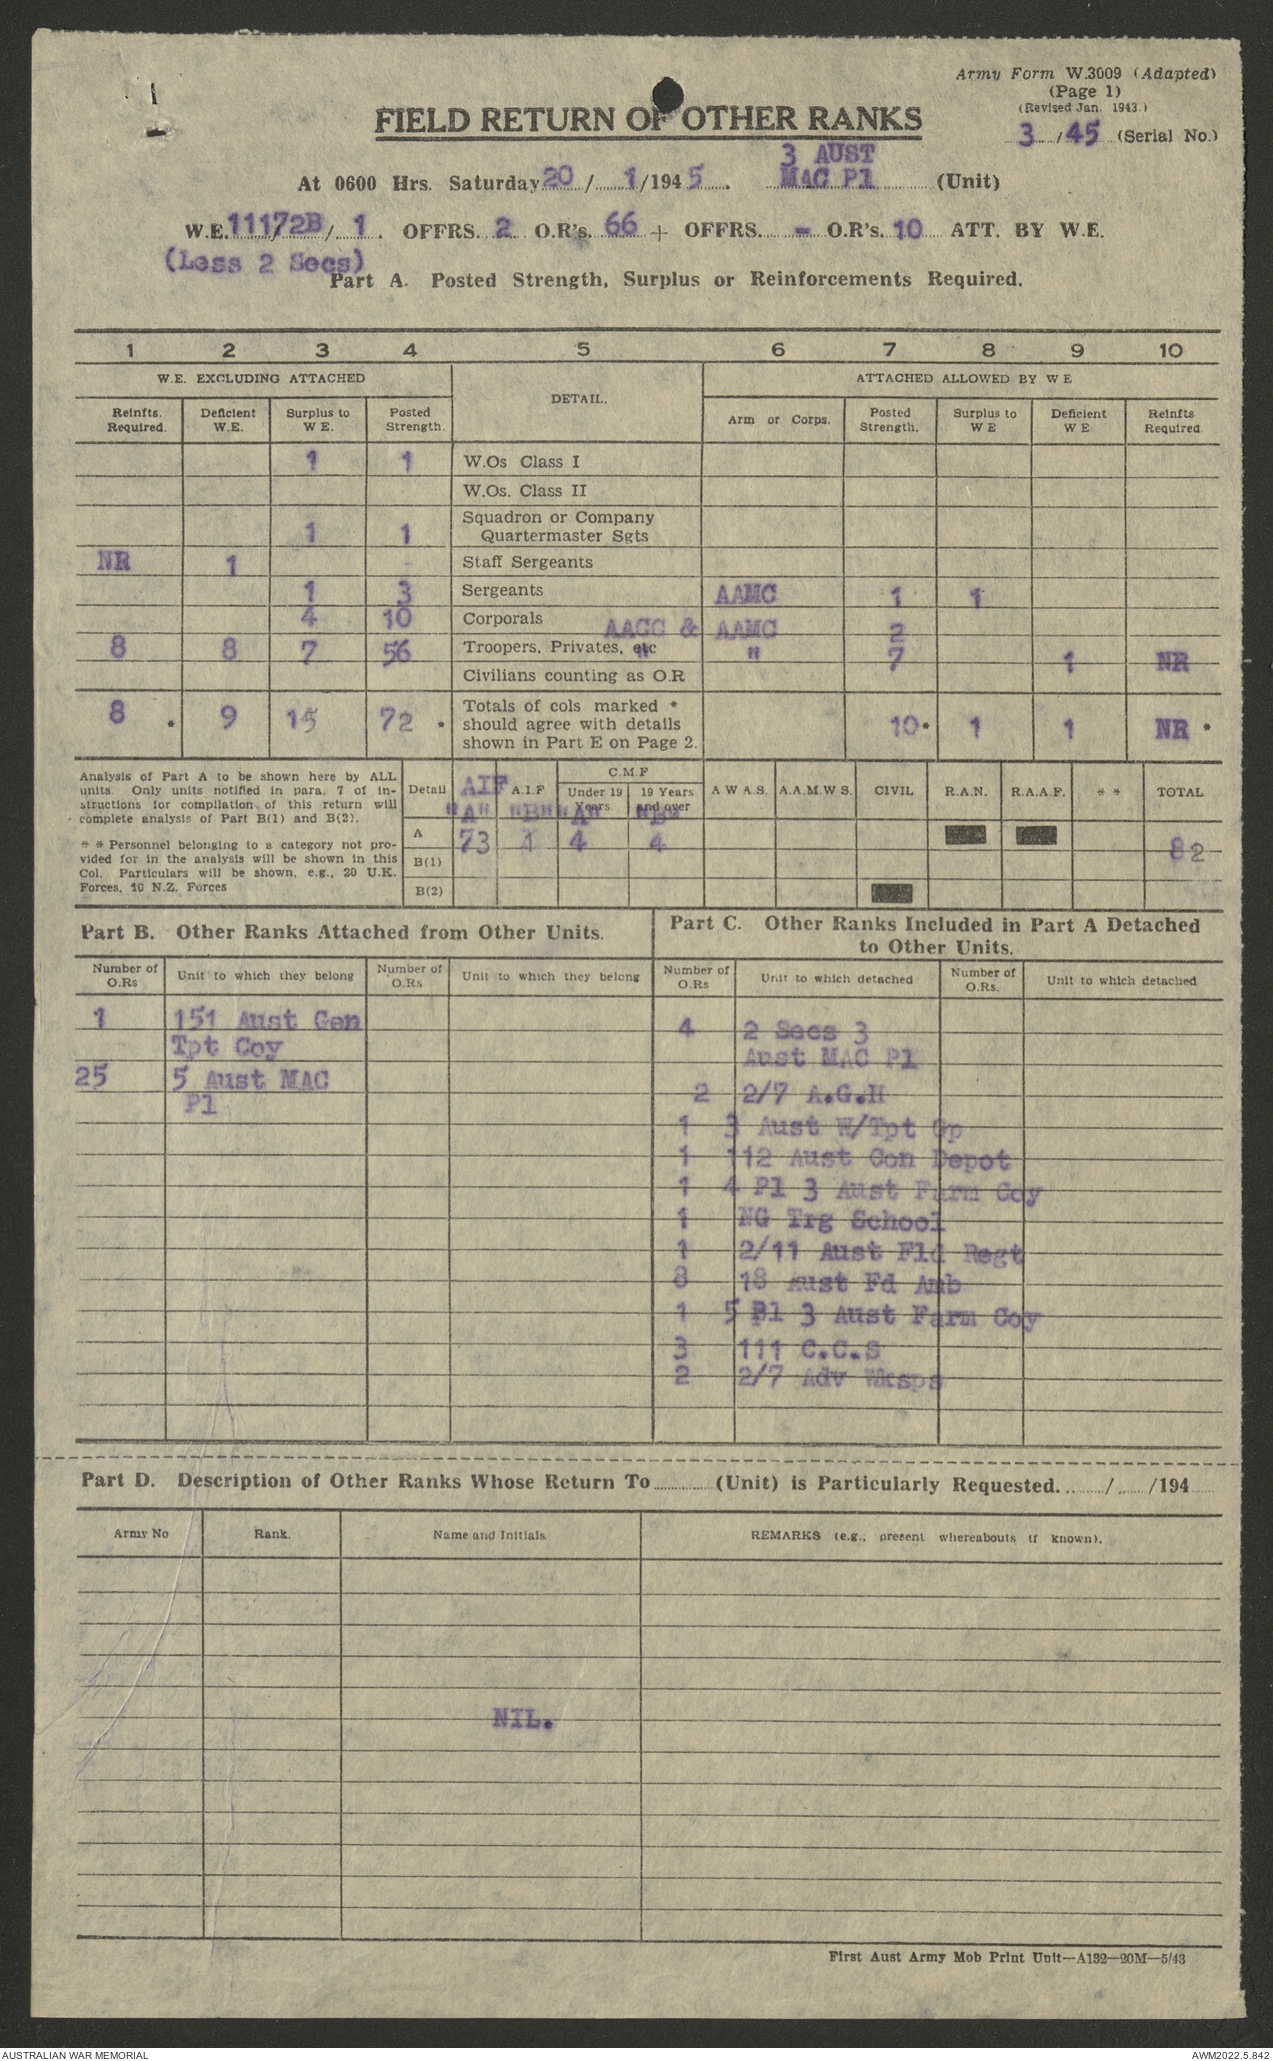 1
Army Form W.3009 (Adapted)
(Page 1)
(Revised Jan. 1943.)
FIELD RETURN OF OTHER RANKS
3 /45 (Serial No.)
3 AUST
At 0600 Hrs. Saturday 20 / 1 /1945 . MAC Pl (Unit)
W.E. 11172B / 1 . OFFRS. 2 O.R's. 66 + OFFRS. - O.R's. 10 ATT. BY W.E.
(Less 2 Secs)
Part A. Posted Strength, Surplus or Reinforcements Required.
1 2 3 4 5 6 7 8 9 10
W.E. EXCLUDING ATTACHED DETAIL. ATTACHED ALLOWED BY W E
Reinfts. Required. Deficient W.E. Surplus to W E. Posted Strength. Arm or Corps. Posted Strength. Surplus to W E Deficient W E Reinfts Required
1 1 W.Os Class I
W.Os. Class II
Squadron or Company
1 1 Quartermaster Sgts
NR 1 Staff Sergeants
1 3 Sergeants AAMC 1 1
4 10 Corporals AACC & AAMC 2
8 8 7 56 Troopers, Privates, etc " " 7 1 NR
Civilians counting as O.R
8 * 9 15 72 * Totals of cols marked * should agree with details shown in Part E on Page 2. 10 * 1 1 NR *
Analysis of Part A to be shown here by ALL
units. Only units notified in para. 7 of in-
structions for compilation of this return will
complete analysis of Part B(1) and B(2).
* * Personnel belonging to a category not pro-
vided for in the analysis will be shown in this
Col. Particulars will be shown, e.g., 20 U.K.
Forces, 10 N.Z. Forces
Detail AIF A.I.F C.M.F A W A.S. A.A.M.W S. CIVIL R.A.N. R.A.A.F. * * TOTAL
Under 19 Years. 19 Years and over
"A" "B" "A" "B"
A 73 1 4 4 82
B(1)
B(2)
Part B. Other Ranks Attached from Other Units.
Number of O.Rs Unit to which they belong Number of O.Rs Unit to which they belong
1 151 Aust Gen
Tpt Coy
25 5 Aust MAC
Pl
Part C. Other Ranks Included in Part A Detached
to Other Units.
Number of O.Rs Unit to which detached Number of O.Rs. Unit to which detached
4 2 Secs 3
Aust MAC Pl
2 2/7 A.G.H
1 3 Aust W/Tpt Gp
1 112 Aust Con Depot
1 4 Pl 3 Aust Farm Coy
1 NG Trg School
1 2/11 Aust Fld Regt
8 18 Aust Fd Amb
1 5 Pl 3 Aust Farm Coy
3 111 C.C.S
2 2/7 Adv Wksps
Part D. Description of Other Ranks Whose Return To ............ (Unit) is Particularly Requested. ......../....../194......
Army No Rank. Name and Initials REMARKS (e.g., present whereabouts if known).
NIL.
First Aust Army Mob Print Unit—A132—20M—5/43
AUSTRALIAN WAR MEMORIAL
AWM2022.5.842